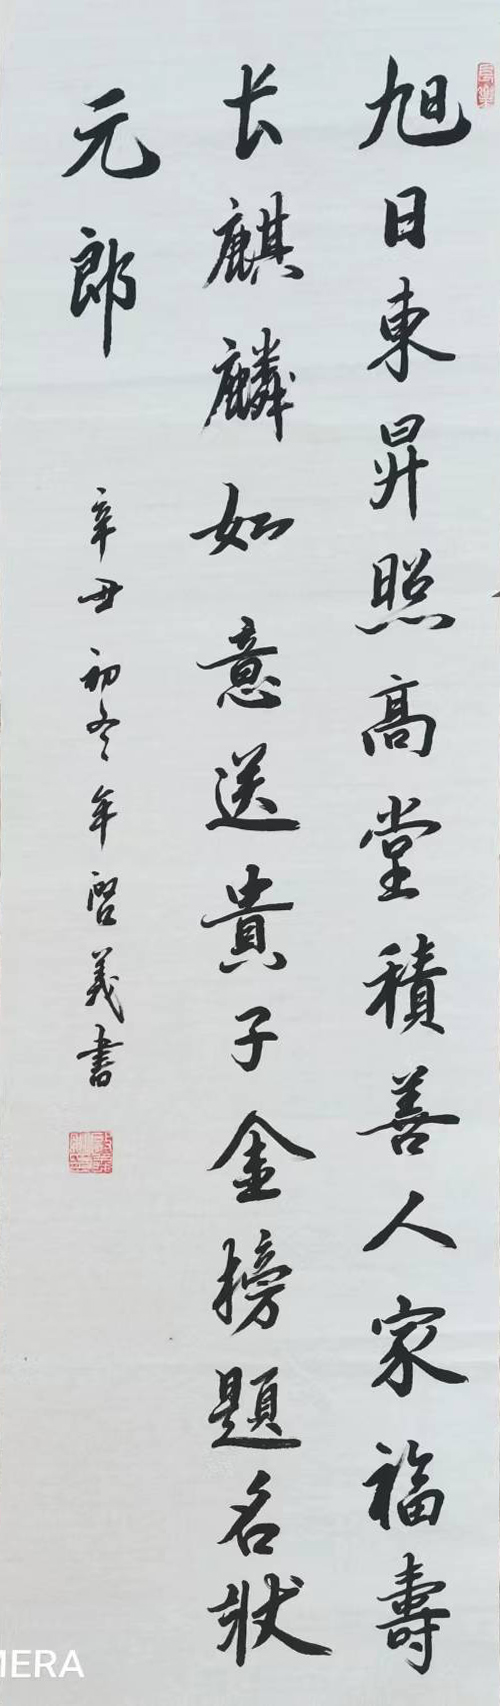 旭日東昇照高堂積善人家福壽
长麒麟如意送貴子金榜題名狀
元郎
辛丑初冬年啓義書
MERA